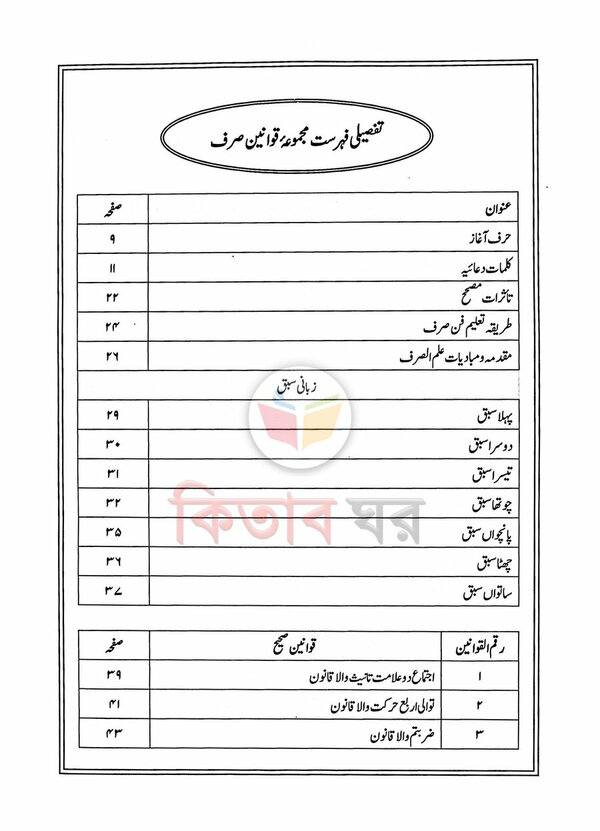 تفصیلی فہرست مجموعۂ قوانین صرف
عنوان صفحہ
حرف آغاز ۹
کلمات دعائیہ ۱۱
تأثرات مصحح ۲۲
طریقہ تعلیم فن صرف ۲۴
مقدمہ ومبادیات علم الصرف ۲۶
زبانی سبق
پہلا سبق ۲۹
دوسرا سبق ۳۰
تیسرا سبق ۳۱
چوتھا سبق ۳۲
কিতাব ঘর
پانچواں سبق ۳۵
چھٹا سبق ۳۶
ساتواں سبق ۳۷
رقم القوانین قوانین صحیح صفحہ
۱ اجتماع دو علامت تانیث والا قانون ۳۹
۲ توالی اربع حرکت والا قانون ۴۱
۳ ضربتم والا قانون ۴۳